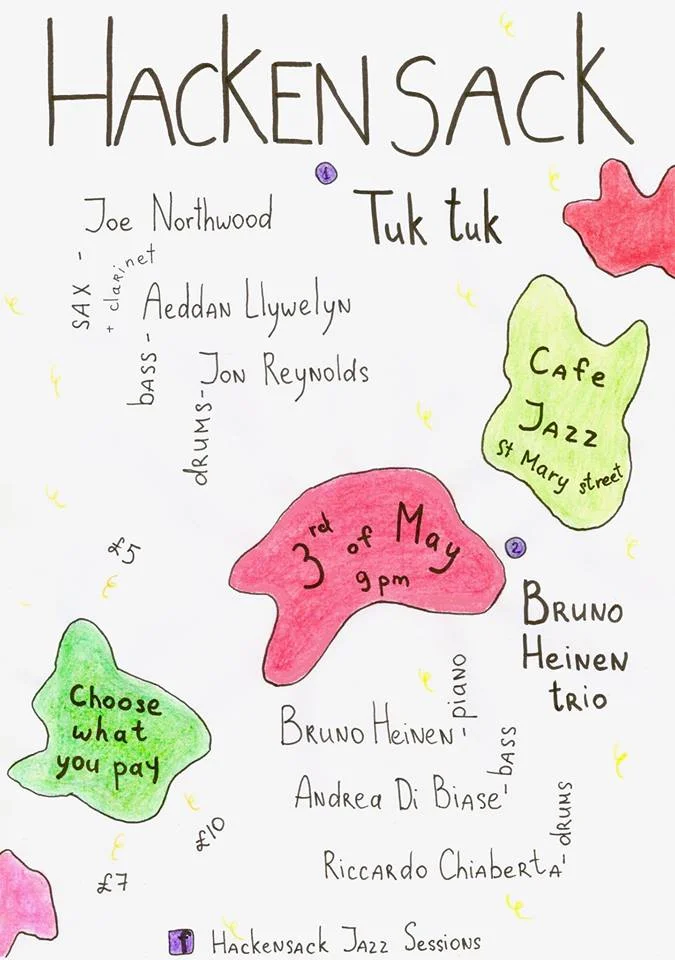 HACKENSACK
1
Tuk tuk
Joe Northwood
SAX -
+ clarinet
Aeddan Llywelyn
bASS -
Jon Reynolds
dRUMS -
Cafe
Jazz
St Mary street
3rd of May
9 pm
2
Bruno
Heinen
trio
£5
Choose
what
you pay
£10
£7
Bruno Heinen - piano
Andrea Di Biase - bASS
Riccardo Chiaberta - dRUMS
f Hackensack Jazz Sessions